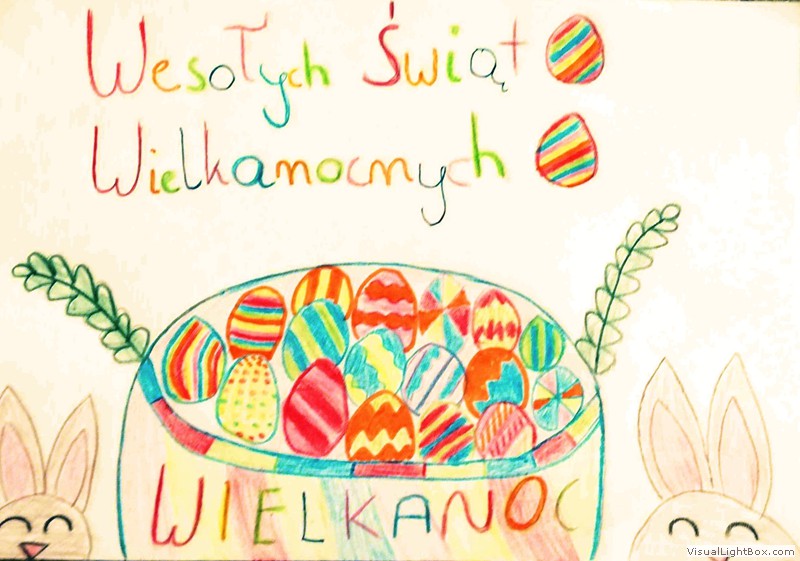 Wesołych Świąt
Wielkanocnych
WIELKANOC
VisualLightBox.com